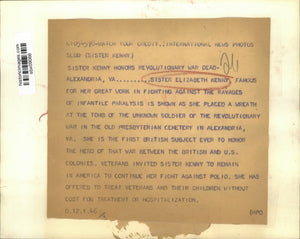 CREDIT..INTERNATIONAL NEWS PHOTOS
SLUG (SISTER KENNY)
SISTER KENNY HONORS REVOLUTIONARY WAR DEAD-
ALEXANDRIA, VA......SISTER ELIZABETH KENNY, FAMOUS
FOR HER GREAT WORK IN FIGHTING AGAINST THE RAVAGES
OF INFANTILE PARALYSIS IS SHOWN AS SHE PLACED A WREATH
AT THE TOMB OF THE UNKNOWN SOLDIER OF THE REVOLUTIONARY
WAR IN THE OLD PRESBYTERIAN CEMETERY IN ALEXANDRIA,
VA. SHE IS THE FIRST BRITISH SUBJECT EVER TO HONOR
THE HERO OF THAT WAR BETWEEN THE BRITISH AND U.S.
COLONIES. VETERANS INVITED SISTER KENNY TO REMAIN
IN AMERICA TO CONTINUE HER FIGHT AGAINST POLIO. SHE HAS
OFFERED TO TREAT VETERANS AND THEIR CHILDREN WITHOUT
COST FOR TREATMENT OR HOSPITALIZATION.